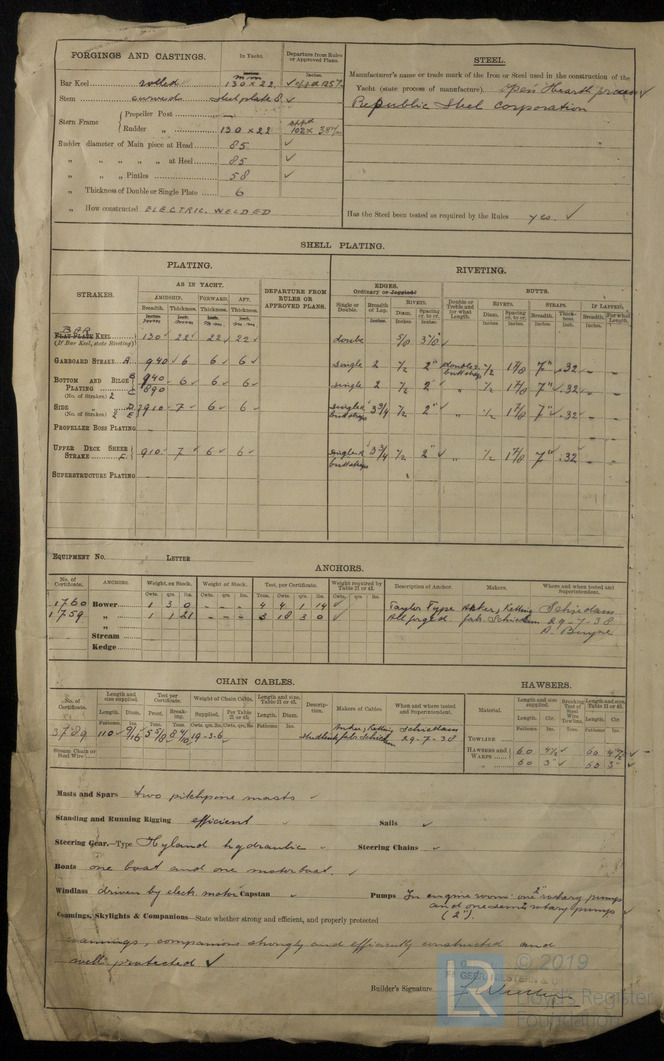 FORGINGS AND CASTINGS.
In Yacht.
Departure from Rules or Approved Plans.
Bar Keel rolled 130 x 22 ✓
Stem steel plate 8 ✓
Stern Frame { Propeller Post —
Rudder „ 130 x 22
Rudder diameter of Main piece at Head 85 ✓
„ „ „ „ at Heel 85 ✓
„ „ Pintles 58 ✓
„ Thickness of Double or Single Plate 6
„ How constructed ELECTRIC. WELDED
STEEL.
Manufacturer's name or trade mark of the Iron or Steel used in the construction of the
Yacht (state process of manufacture). Open Hearth process ✓
Republic Steel Corporation
Has the Steel been tested as required by the Rules yes. ✓
SHELL PLATING.
PLATING.
RIVETING.
STRAKES.
AS IN YACHT.
AMIDSHIP. FORWARD. AFT.
Breadth. Thickness. Thickness. Thickness.
DEPARTURE FROM RULES OR APPROVED PLANS.
EDGES.
Ordinary or Joggled
BUTTS.
Single or Double.
Breadth of Lap.
RIVETS.
Diam.
Spacing cr. to cr.
Double or Treble and for what Length.
RIVETS.
Diam.
Spacing cr. to cr.
STRAPS.
Breadth.
Thickness.
IF LAPPED.
Breadth.
For what Length.
BAR
Flat Plate Keel 130 22 ✓ 22 ✓ 22 ✓ double 5/8 3 1/8 ✓
(If Bar Keel, state Riveting)
Garboard Strake A 940 ✓ 6 6 ✓ 6 ✓ single 2 1/2 2" double buttstrap 1/2 1 7/8 7" .32 ✓
Bottom and Bilge Plating B 940 C 890 ✓ 6 ✓ 6 ✓ 6 ✓ single 2 1/2 2" ✓ „ 1/2 1 7/8 7" ✓ .32 ✓
(No. of Strakes) 2
Side „ D E 910 ✓ 7 ✓ 6 ✓ 6 ✓ single & buttstraps 3 3/4 1/2 2" ✓ „ 1/2 1 7/8 7" ✓ .32 ✓
(No. of Strakes) 2
Propeller Boss Plating
Upper Deck Sheer Strake 910 ✓ 7 ✓ 6 ✓ 6 ✓ single & buttstraps 3 3/4 1/2 2" ✓ „ 1/2 1 7/8 7" ✓ .32
Superstructure Plating
Equipment No. Letter
ANCHORS.
No. of Certificate.
ANCHORS.
Weight, ex Stock.
Weight of Stock.
Test, per Certificate.
Weight required by Table 21 or 43.
Description of Anchor.
Makers.
Where and when tested and Superintendent.
Cwts. qrs. lbs. Cwts. qrs. lbs. Tons. Cwts. qrs. lbs. Cwts. qrs. lbs.
1760 Bower 1 3 0 - - - 4 4 1 14 ✓ Taylor Type Schiedam
1759 „ 1 1 21 - - - 3 18 3 0 ✓ All forged fab. Schiedam 29-7-38
„
Stream
Kedge
CHAIN CABLES.
HAWSERS.
No. of Certificate.
Length and size supplied.
Test per Certificate.
Weight of Chain Cable.
Length and size, Table 21 or 43.
Description.
Makers of Cables.
When and where tested and Superintendent.
Material.
Length and size supplied.
Breaking Test of Steel Wire Towline.
Length and size, Table 21 or 43.
Length. Diam. Proof. Breaking. Supplied. Per Table 21 or 43. Length. Diam. Length. Cir. Length. Cir.
3789 110 ✓ 9/16 19-3-6 ✓ Studlink fab. Schiedam Schiedam 29-7-38
Steam Chain or Steel Wire
Towline
Hawsers and Warps 60 4 1/2 ✓ 60 4 1/2 ✓
„ 60 3" ✓ 60 3" ✓
Masts and Spars two pitchpine masts ✓
Standing and Running Rigging efficient ✓ Sails ✓
Steering Gear.—Type Hyland hydraulic ✓ Steering Chains ✓
Boats one boat and one motorboat. ✓
Windlass driven by electr. motor Capstan ✓ Pumps In engine room: one 2" rotary pumps
and one semi rotary pumps ✓
(2").
Coamings, Skylights & Companions—State whether strong and efficient, and properly protected
coamings, companions strongly and efficiently constructed and
well protected ✓
Builder's Signature.
© 2019
LR
Lloyd's Register
Foundation